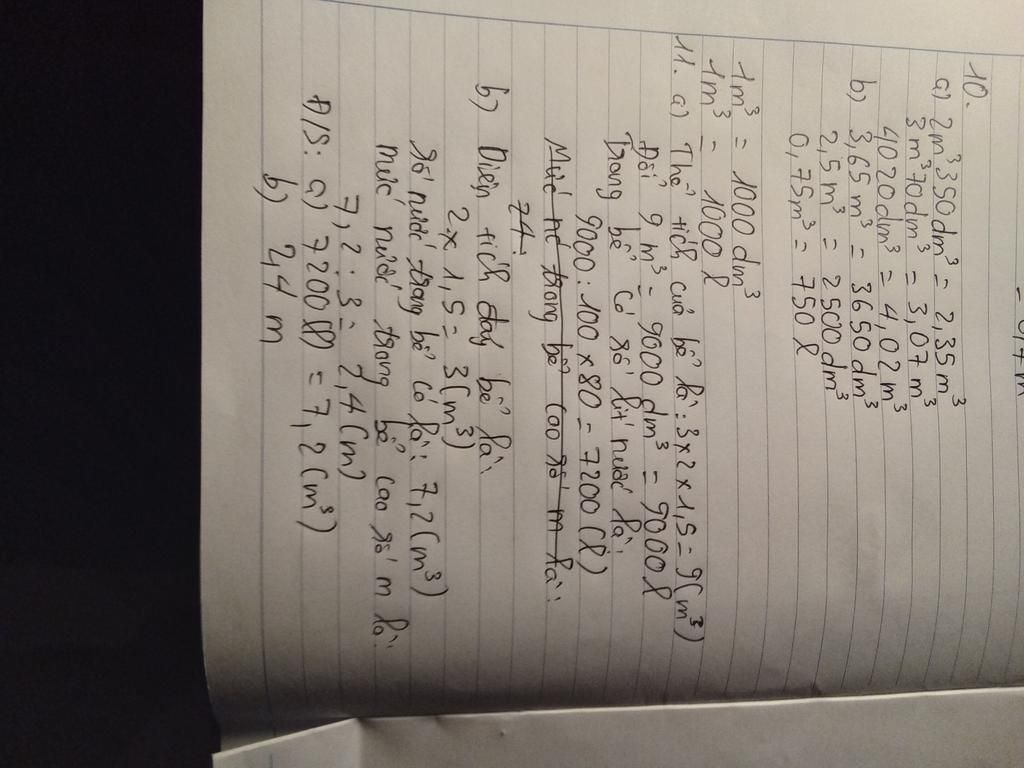 10.
a) 2m³350dm³ = 2,35m³
3m³70dm³ = 3,07m³
4020dm³ = 4,02m³
b) 3,65m³ = 3650dm³
2,5m³ = 2500dm³
0,75m³ = 750l
1m³ = 1000dm³
1m³ = 1000l
11. a) Thể tích của bể là: 3x2x1,5 = 9(m³)
Đổi 9m³ = 9000dm³ = 9000l
Trong bể có số lít nước là:
9000:100x80 = 7200(l)
Mức nc trong bể cao số m là:
b) Diện tích đáy bể là:
2x1,5 = 3(m³)
Số nước trong bể có là: 7,2(m³)
Mức nước trong bể cao số m là:
7,2:3 = 2,4(m)
Đ/S: a) 7200(l) = 7,2(m³)
b) 2,4m